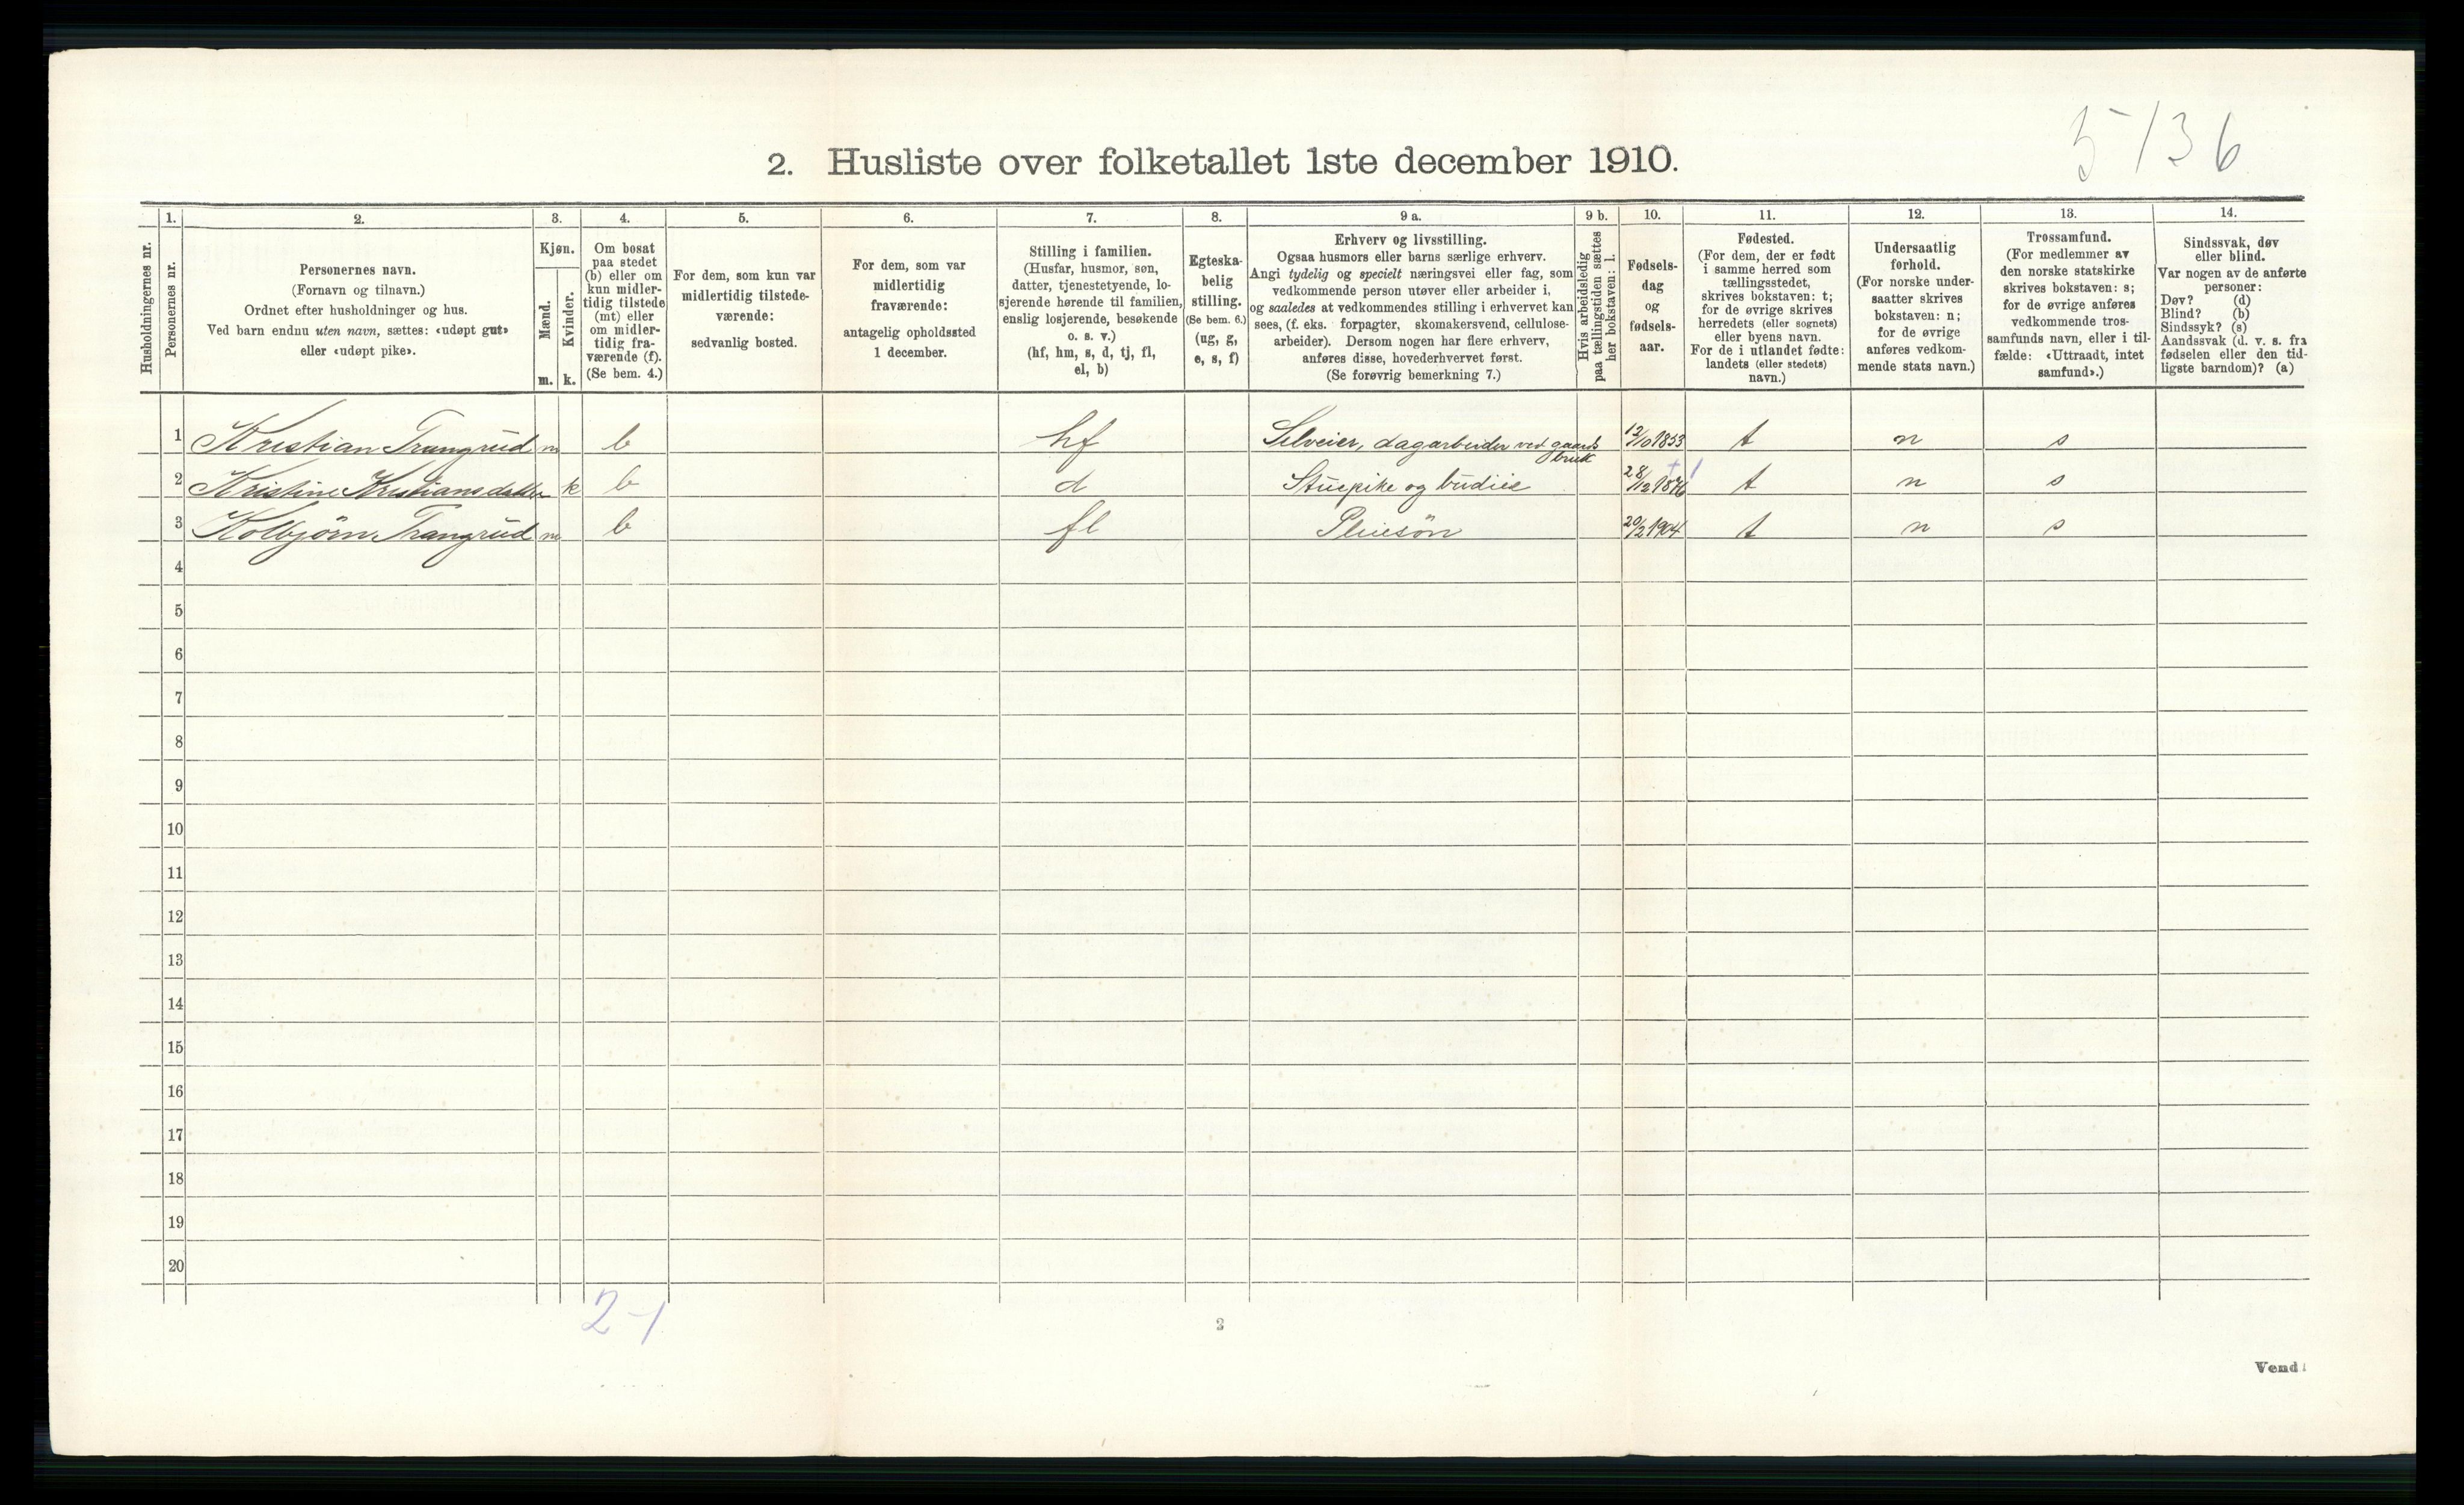 5/36
2. Husliste over folketallet 1ste december 1910.
Husholdningernes nr.
1.
Personernes nr.
2.
Personernes navn.
(Fornavn og tilnavn.)
Ordnet efter husholdninger og hus.
Ved barn endnu uten navn, sættes: «udøpt gut»
eller «udøpt pike».
3.
Kjøn.
Mænd.
Kvinder.
m. k.
4.
Om bosat
paa stedet
(b) eller om
kun midler-
tidig tilstede
(mt) eller
om midler-
tidig fra-
værende (f).
(Se bem. 4.)
5.
For dem, som kun var
midlertidig tilstede-
værende:
sedvanlig bosted.
6.
For dem, som var
midlertidig
fraværende:
antagelig opholdssted
1 december.
7.
Stilling i familien.
(Husfar, husmor, søn,
datter, tjenestetyende, lo-
sjerende hørende til familien,
enslig losjerende, besøkende
o. s. v.)
(hf, hm, s, d, tj, fl,
el, b)
8.
Egteska-
belig
stilling.
(Se bem. 6.)
(ug, g,
e, s, f)
9 a.
Erhverv og livsstilling.
Ogsaa husmors eller barns særlige erhverv.
Angi tydelig og specielt næringsvei eller fag, som
vedkommende person utøver eller arbeider i,
og saaledes at vedkommendes stilling i erhvervet kan
sees, (f. eks. forpagter, skomakersvend, cellulose-
arbeider). Dersom nogen har flere erhverv,
anføres disse, hovederhvervet først.
(Se forøvrig bemerkning 7.)
9 b.
Hvis arbeidsledig
paa tællingstiden sættes
her bokstaven: l.
10.
Fødsels-
dag
og
fødsels-
aar.
11.
Fødested.
(For dem, der er født
i samme herred som
tællingsstedet,
skrives bokstaven: t;
for de øvrige skrives
herredets (eller sognets)
eller byens navn.
For de i utlandet fødte:
landets (eller stedets)
navn.)
12.
Undersaatlig
forhold.
(For norske under-
saatter skrives
bokstaven: n;
for de øvrige
anføres vedkom-
mende stats navn.)
13.
Trossamfund.
(For medlemmer av
den norske statskirke
skrives bokstaven: s;
for de øvrige anføres
vedkommende tros-
samfunds navn, eller i til-
fælde: «Uttraadt, intet
samfund».)
14.
Sindssvak, døv
eller blind.
Var nogen av de anførte
personer:
Døv? (d)
Blind? (b)
Sindssyk? (s)
Aandssvak (d. v. s. fra
fødselen eller den tid-
ligste barndom)? (a)
1 Kristian Trangrud m b hf Selveier, dagarbeider ved gaardsbruk 12/10 1853 t n s
2 Kristine Kristiansdatter k b d Stuepike og budeie 28/12 1876 t n s
3 Kolbjörn Trangrud m b fl Pleiesön 20/2 1904 t n s
4
5
6
7
8
9
10
11
12
13
14
15
16
17
18
19
20
2-1
2
Vend!